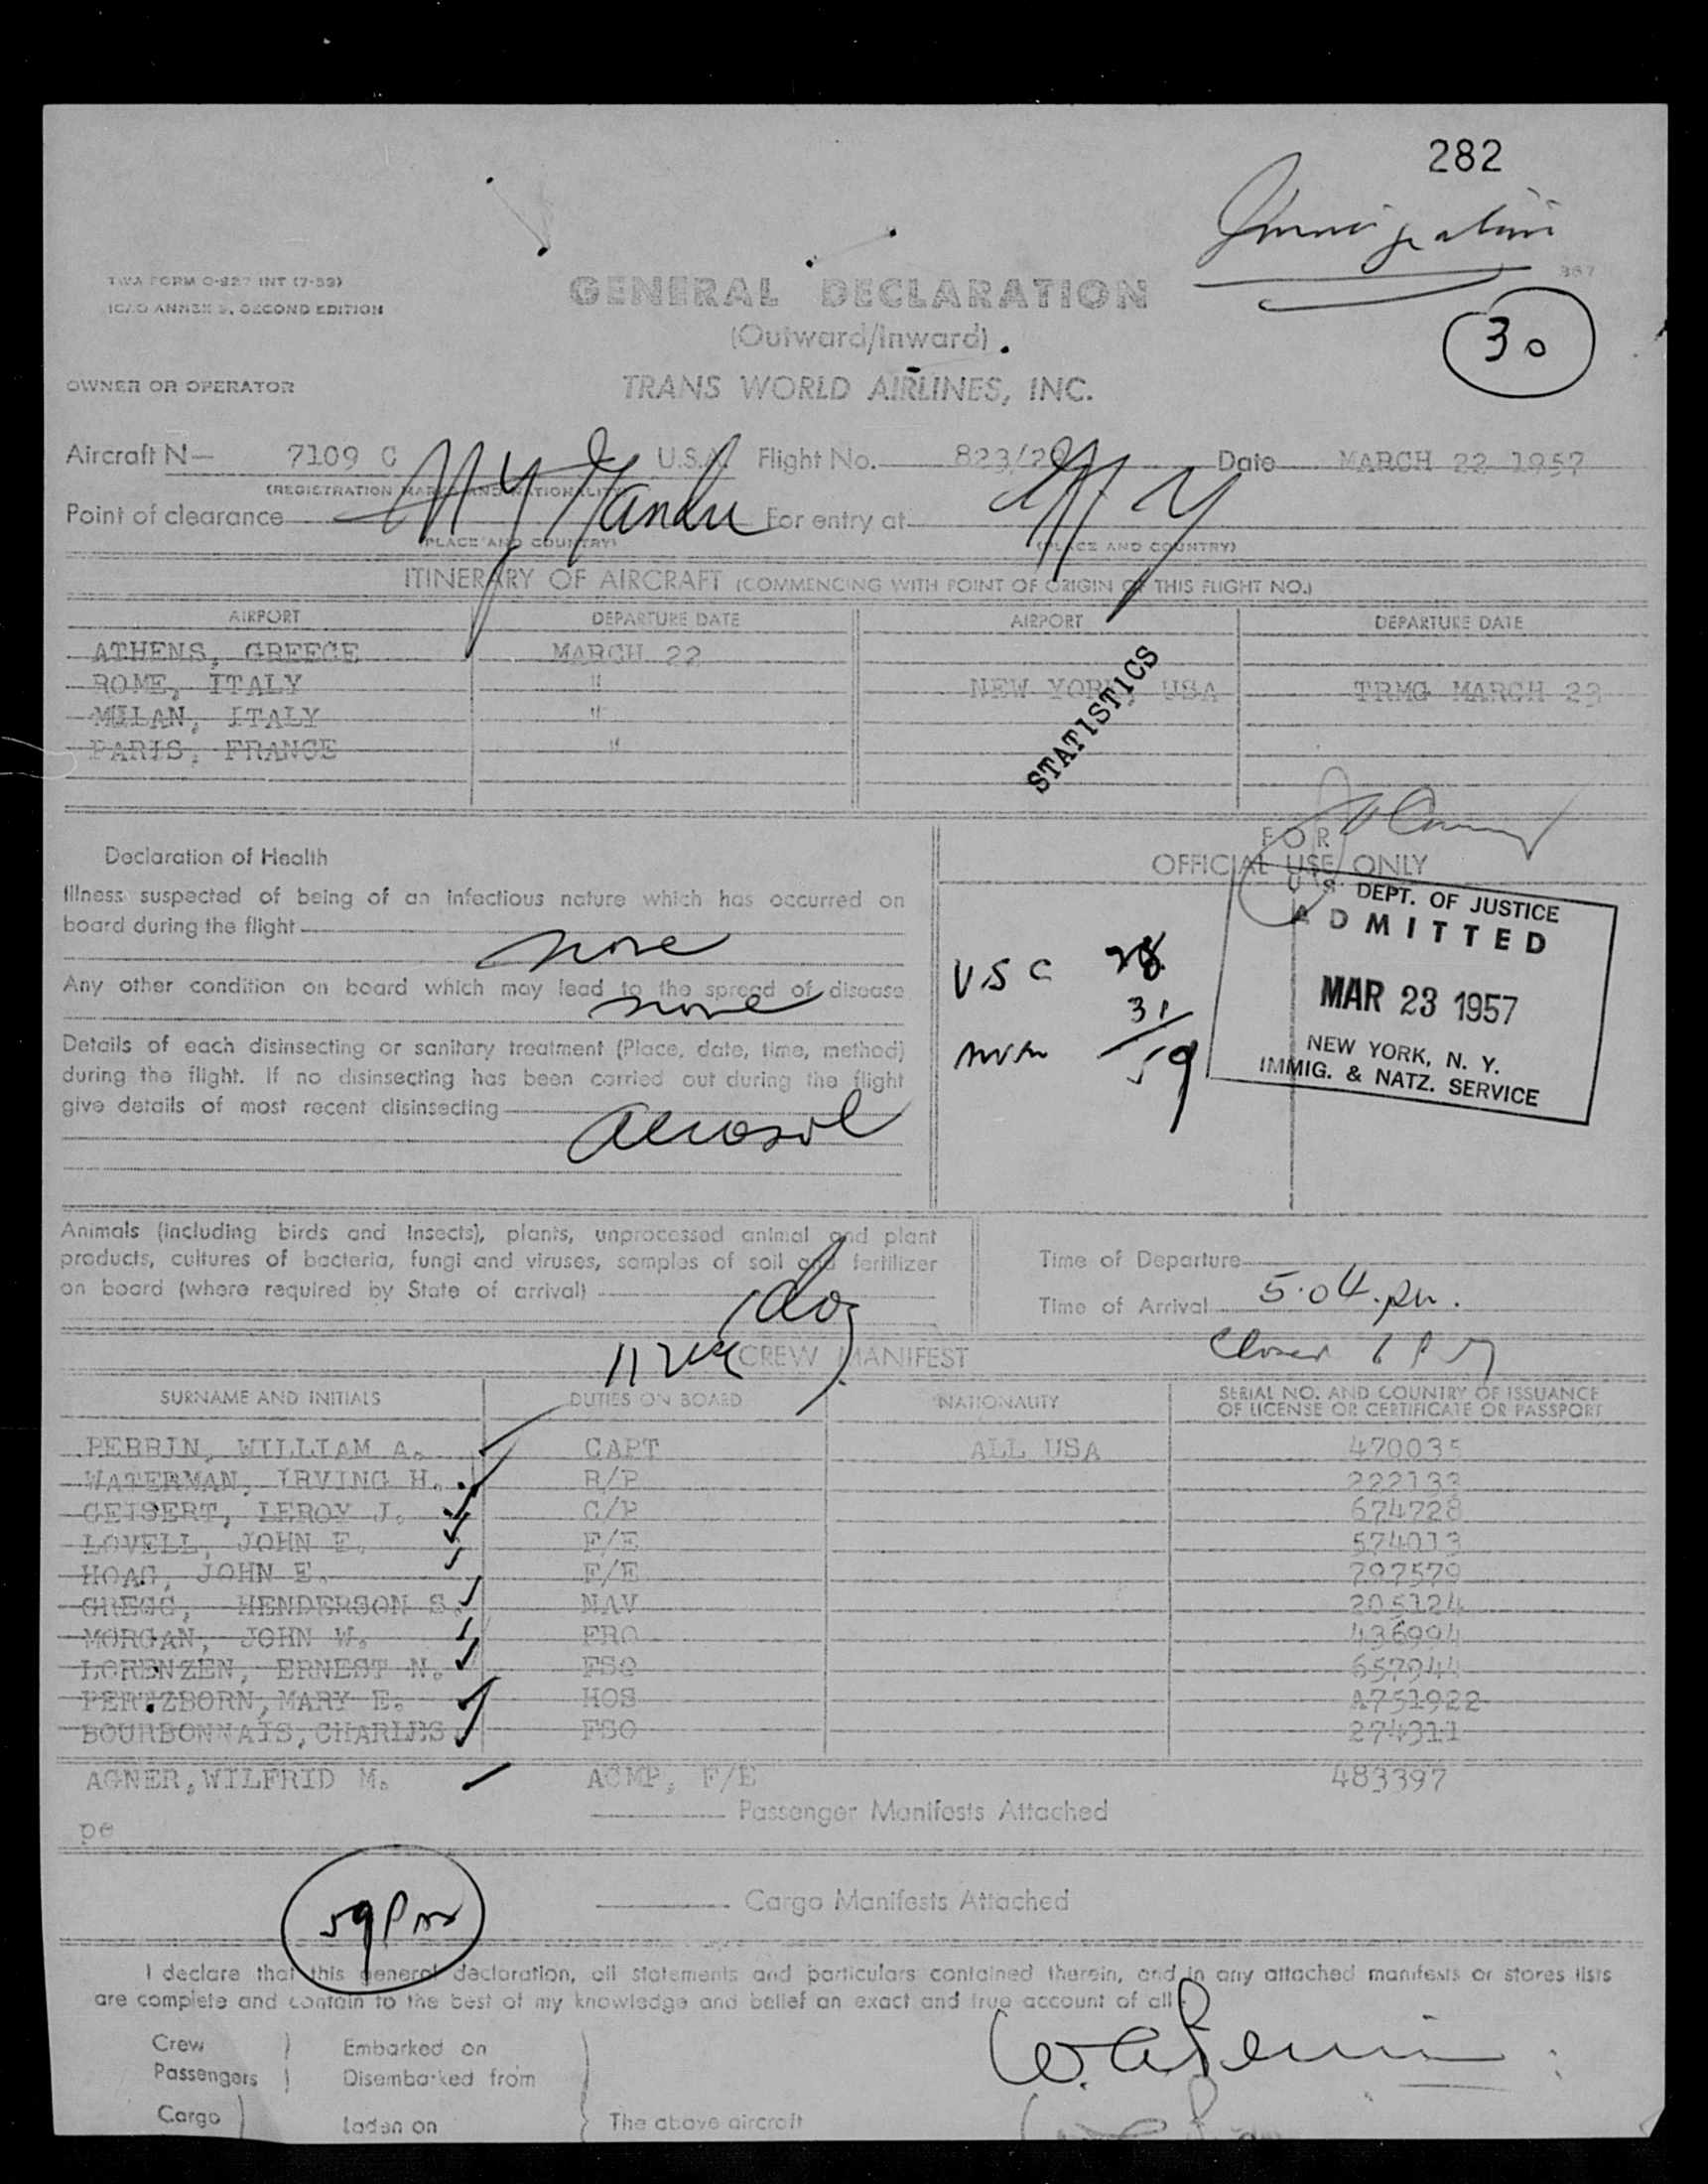 282
Immigration
367
TWA FORM O-827 INT (7-53)
ICAO ANNEX 9, SECOND EDITION
GENERAL DECLARATION
(Outward/Inward)
30
OWNER OR OPERATOR
TRANS WORLD AIRLINES, INC.
Aircraft N— 7109 C U.S.A. Flight No. 823/22 Date MARCH 22 1957
(REGISTRATION MARKS AND NATIONALITY)
Point of clearance For entry at N Y
(PLACE AND COUNTRY) (PLACE AND COUNTRY)
ITINERARY OF AIRCRAFT (COMMENCING WITH POINT OF ORIGIN OF THIS FLIGHT NO.)
AIRPORT DEPARTURE DATE AIRPORT DEPARTURE DATE
ATHENS, GREECE MARCH 22
ROME, ITALY " NEW YORK, USA TRMG MARCH 23
MILAN, ITALY "
PARIS, FRANCE "
STATISTICS
FOR
OFFICIAL USE ONLY
Declaration of Health
Illness suspected of being of an infectious nature which has occurred on
board during the flight none
Any other condition on board which may lead to the spread of disease
none
Details of each disinsecting or sanitary treatment (Place, date, time, method)
during the flight. If no disinsecting has been carried out during the flight
give details of most recent disinsecting
aerosol
USC 28
31
59
U.S. DEPT. OF JUSTICE
ADMITTED
MAR 23 1957
NEW YORK, N. Y.
IMMIG. & NATZ. SERVICE
Animals (including birds and insects), plants, unprocessed animal and plant
products, cultures of bacteria, fungi and viruses, samples of soil and fertilizer
on board (where required by State of arrival) 1 dog
Time of Departure
Time of Arrival 5:04 pm.
CREW MANIFEST
SURNAME AND INITIALS DUTIES ON BOARD NATIONALITY SERIAL NO. AND COUNTRY OF ISSUANCE
OF LICENSE OR CERTIFICATE OR PASSPORT
PERRIN, WILLIAM A. CAPT ALL USA 470035
WATERMAN, IRVING H. R/P 222133
GEISERT, LEROY J. C/P 674728
LOVELL, JOHN E. F/E 574013
HOAG, JOHN E. F/E 797579
GREGG, HENDERSON S. NAV 205124
MORGAN, JOHN W. FRO 436994
LORENZEN, ERNEST N. FSO 657944
PERTZBORN, MARY E. HOS A751922
BOURBONNAIS, CHARLES FSO 274311
AGNER, WILFRID M. ACMP, F/E 483397
Passenger Manifests Attached
pe
Cargo Manifests Attached
59 Pax
I declare that this general declaration, all statements and particulars contained therein, and in any attached manifests or stores lists
are complete and contain to the best of my knowledge and belief an exact and true account of all
W. A. Perrin
Crew Embarked on
Passengers Disembarked from
Cargo Laden on The above aircraft